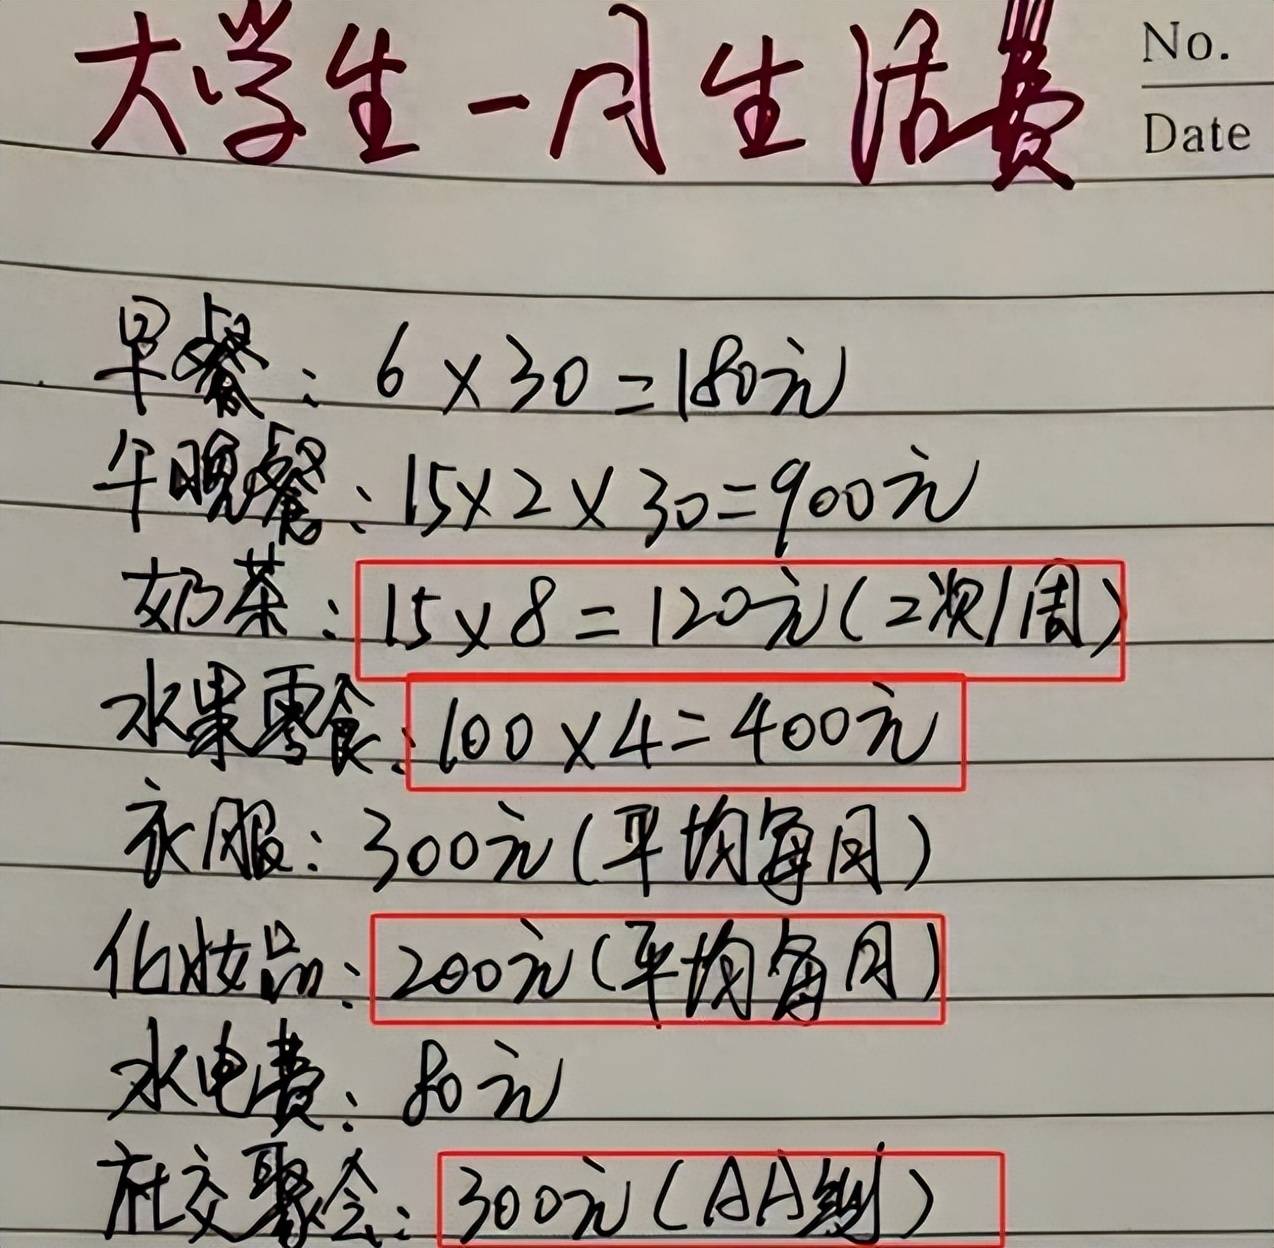 大学生一月生活费
No.
Date
早餐：6×30=180元
午晚餐：15×2×30=900元
奶茶：15×8=120元(2次/周)
水果零食：100×4=400元
衣服：300元(平均每月)
化妆品：200元(平均每月)
水电费：80元
社交聚会：300元(AA制)